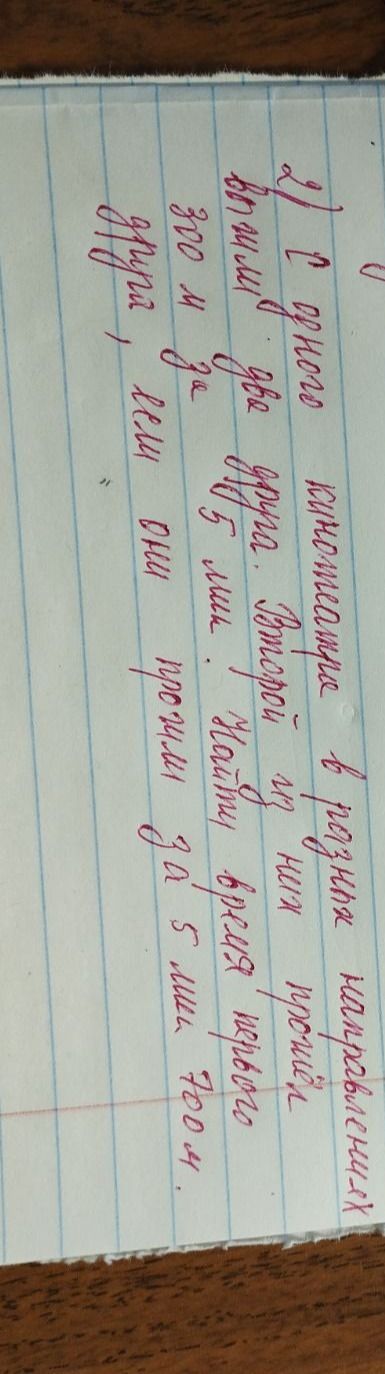 2) С одного кинотеатра в разных направлениях
вышли два друга. Второй из них прошёл
300 м за 5 мин. Найти время первого
друга, если они прошли за 5 мин 700 м.